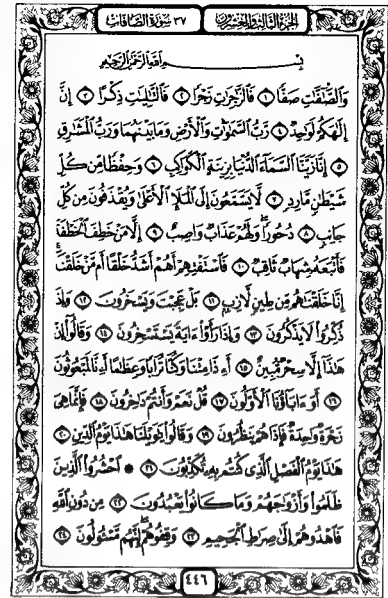 الجزء الثالث والعشرون
٣٧ سورة الصافات
بِسْمِ ٱللَّهِ ٱلرَّحْمَٰنِ ٱلرَّحِيمِ
وَٱلصَّٰٓفَّٰتِ صَفًّا ١ فَٱلزَّٰجِرَٰتِ زَجْرًا ٢ فَٱلتَّٰلِيَٰتِ ذِكْرًا ٣ إِنَّ
إِلَٰهَكُمْ لَوَٰحِدٌ ٤ رَّبُّ ٱلسَّمَٰوَٰتِ وَٱلْأَرْضِ وَمَا بَيْنَهُمَا وَرَبُّ ٱلْمَشَٰرِقِ
٥ إِنَّا زَيَّنَّا ٱلسَّمَآءَ ٱلدُّنْيَا بِزِينَةٍ ٱلْكَوَاكِبِ ٦ وَحِفْظًا مِّن كُلِّ
شَيْطَٰنٍ مَّارِدٍ ٧ لَّا يَسَّمَّعُونَ إِلَى ٱلْمَلَإِ ٱلْأَعْلَىٰ وَيُقْذَفُونَ مِن كُلِّ
جَانِبٍ ٨ دُحُورًا ۖ وَلَهُمْ عَذَابٌ وَاصِبٌ ٩ إِلَّا مَنْ خَطِفَ ٱلْخَطْفَةَ
فَأَتْبَعَهُۥ شِهَابٌ ثَاقِبٌ ١٠ فَٱسْتَفْتِهِمْ أَهُمْ أَشَدُّ خَلْقًا أَم مَّنْ خَلَقْنَآ ۚ
إِنَّا خَلَقْنَٰهُم مِّن طِينٍ لَّازِبٍۭ ١١ بَلْ عَجِبْتَ وَيَسْخَرُونَ ١٢ وَإِذَا
ذُكِّرُوا۟ لَا يَذْكُرُونَ ١٣ وَإِذَا رَأَوْا۟ ءَايَةً يَسْتَسْخِرُونَ ١٤ وَقَالُوٓا۟ إِنْ
هَٰذَآ إِلَّا سِحْرٌ مُّبِينٌ ١٥ أَءِذَا مِتْنَا وَكُنَّا تُرَابًا وَعِظَٰمًا أَءِنَّا لَمَبْعُوثُونَ
١٦ أَوَءَابَآؤُنَا ٱلْأَوَّلُونَ ١٧ قُلْ نَعَمْ وَأَنتُمْ دَٰخِرُونَ ١٨ فَإِنَّمَا هِىَ
زَجْرَةٌ وَٰحِدَةٌ فَإِذَا هُمْ يَنظُرُونَ ١٩ وَقَالُوا۟ يَٰوَيْلَنَا هَٰذَا يَوْمُ ٱلدِّينِ ٢٠
هَٰذَا يَوْمُ ٱلْفَصْلِ ٱلَّذِى كُنتُم بِهِۦ تُكَذِّبُونَ ٢١ ۞ ٱحْشُرُوا۟ ٱلَّذِينَ
ظَلَمُوا۟ وَأَزْوَٰجَهُمْ وَمَا كَانُوا۟ يَعْبُدُونَ ٢٢ مِن دُونِ ٱللَّهِ
فَٱهْدُوهُمْ إِلَىٰ صِرَٰطِ ٱلْجَحِيمِ ٢٣ وَقِفُوهُمْ ۖ إِنَّهُم مَّسْـُٔولُونَ ٢٤
٤٤٦